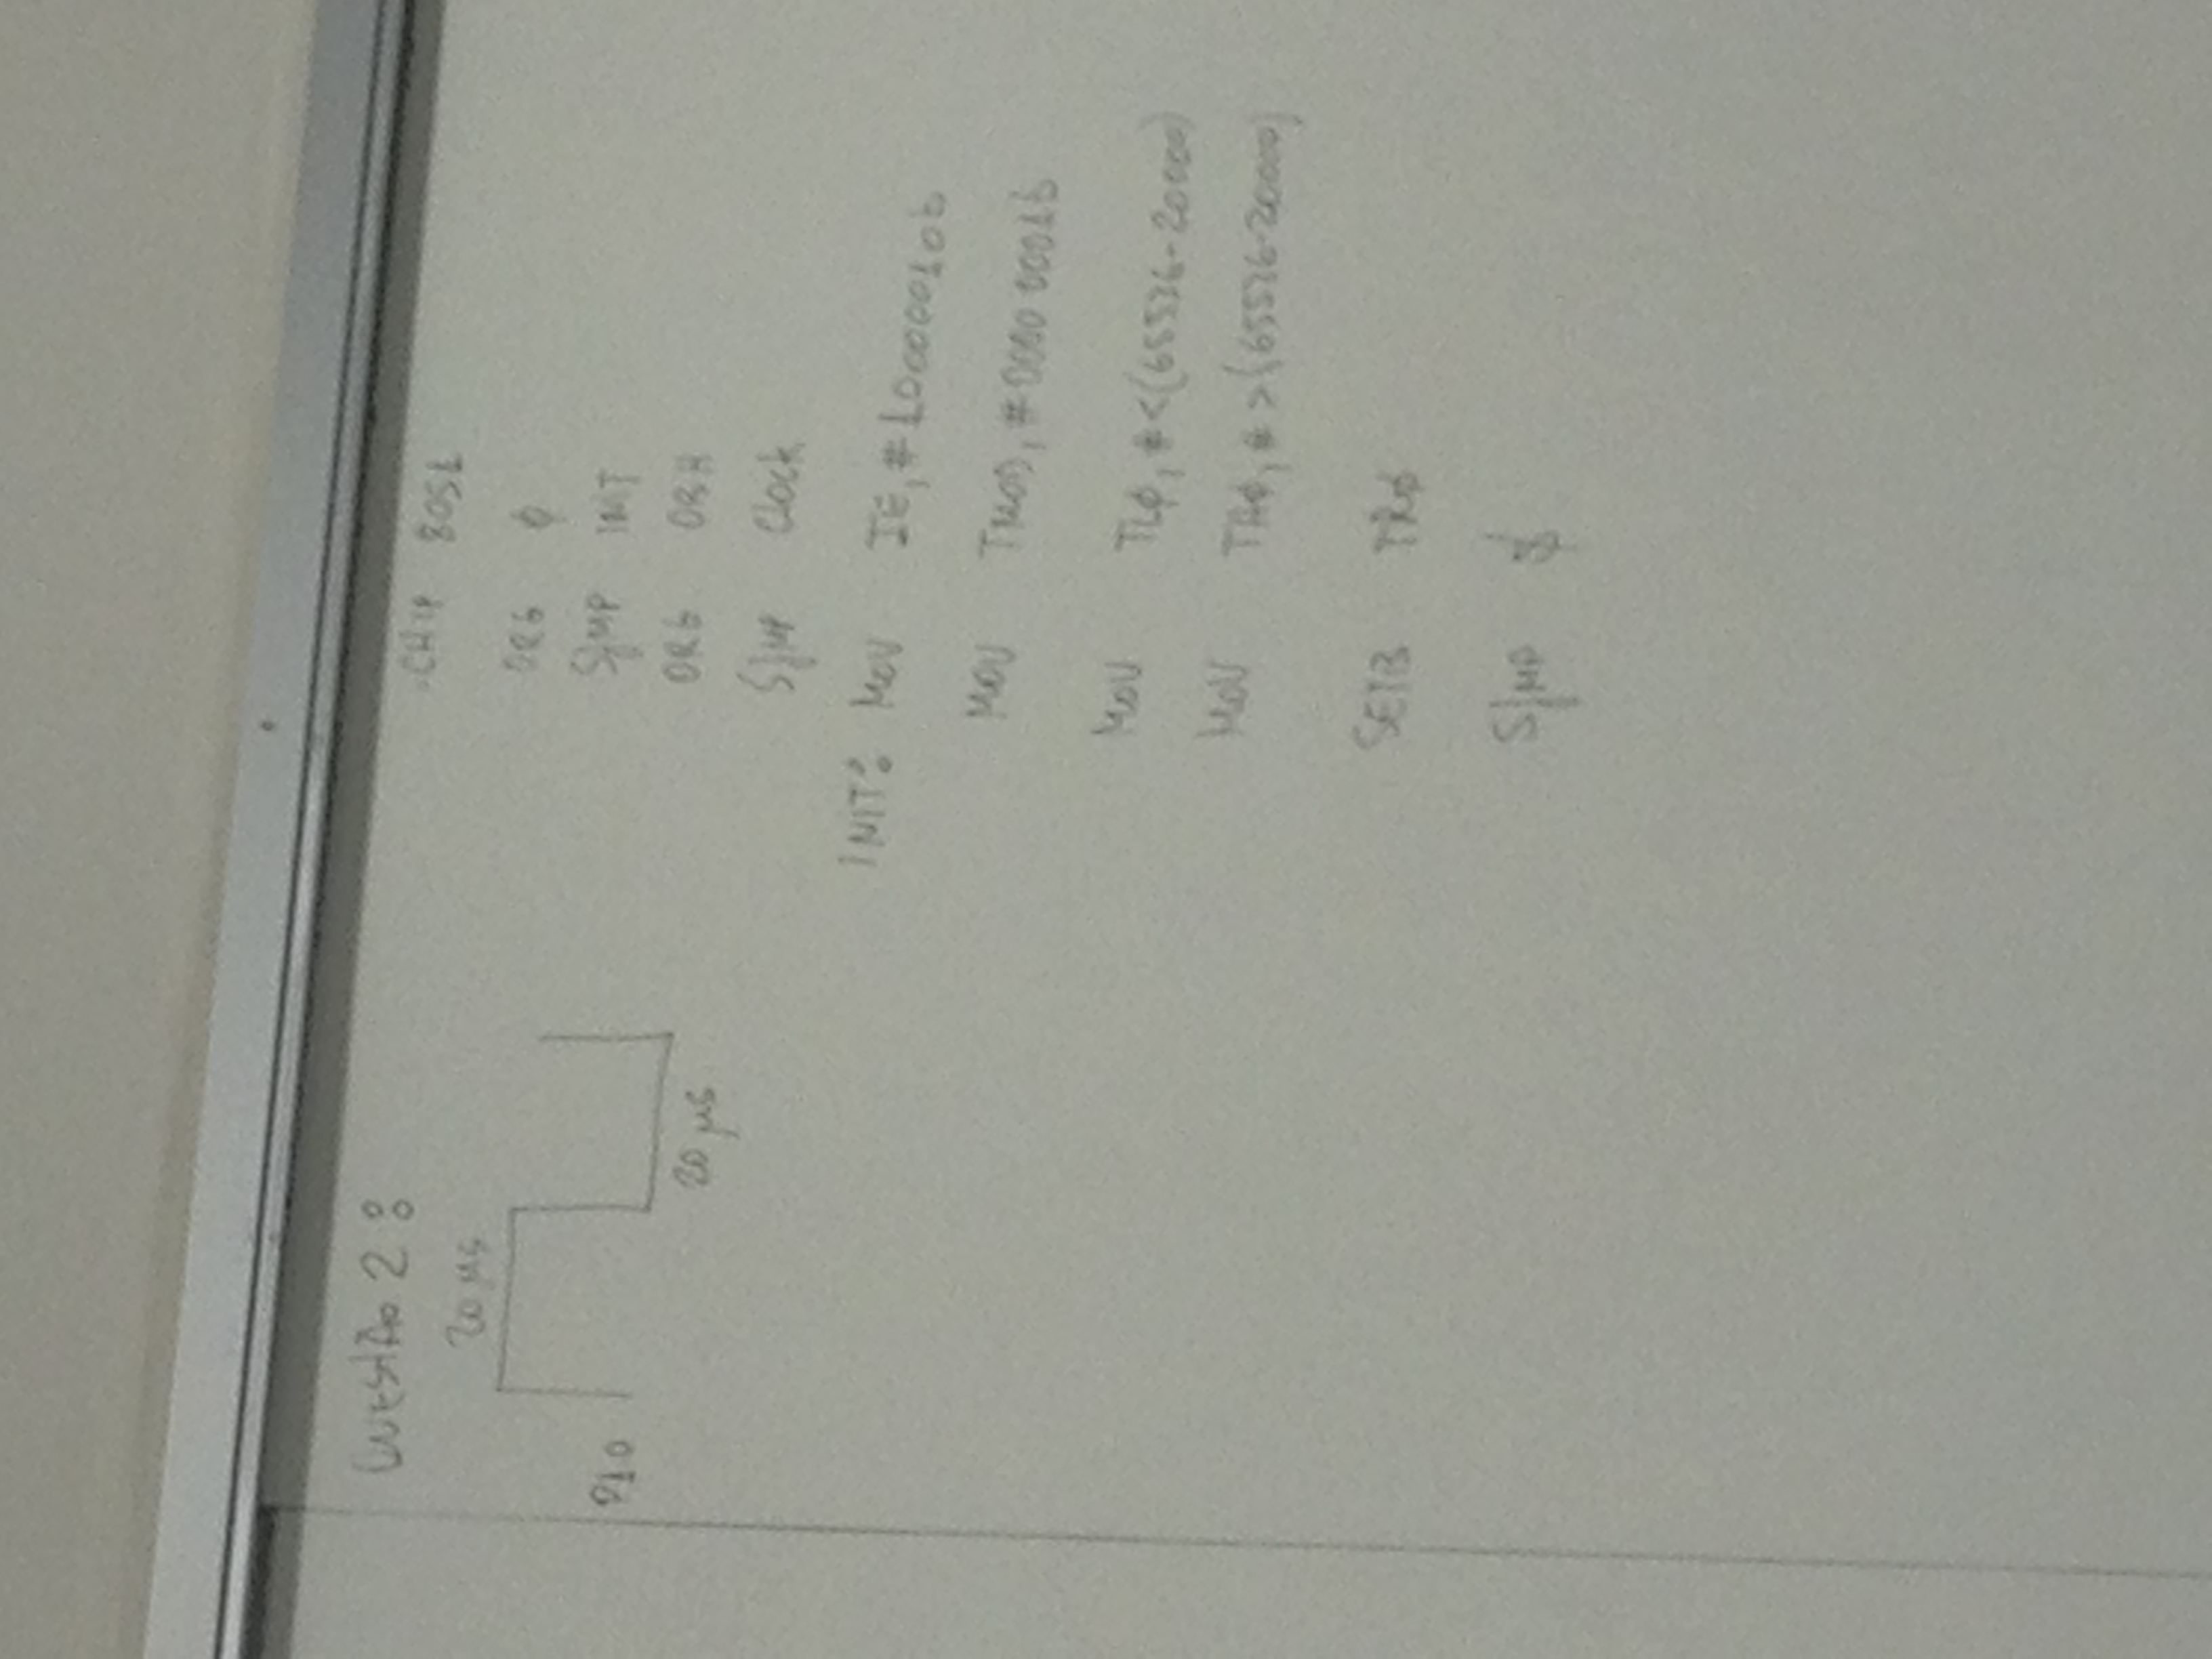 QUESTÃO 2:
20 µs
P1.0
20 µs
.CHIP 8051
ORG Ø
SJMP INIT
ORG OBH
SJMP Clock
INIT: MOV IE,#10000010b
MOV TMOD,#0000 0001b
MOV TLØ,#<(65536-20000)
MOV THØ,#>(65536-20000)
SETB TRØ
SJMP $